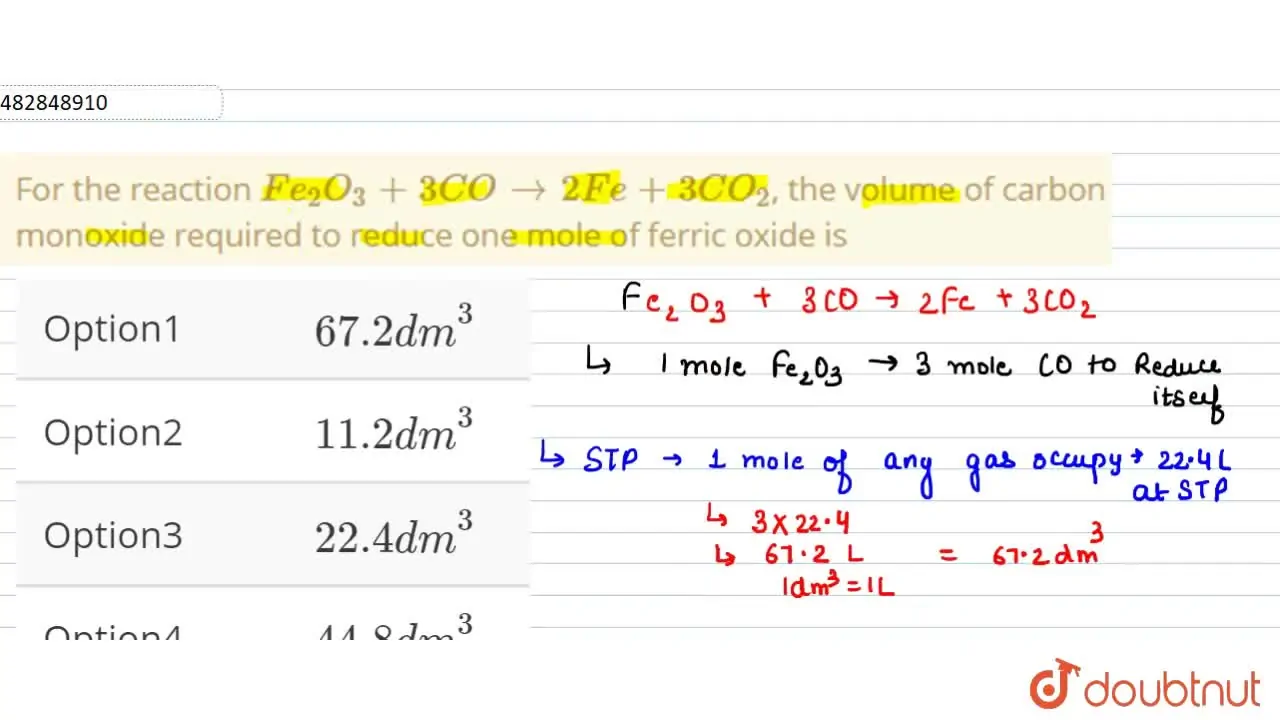 482848910
For the reaction Fe₂O₃ + 3CO → 2Fe + 3CO₂, the volume of carbon
monoxide required to reduce one mole of ferric oxide is
Option1 67.2dm³
Option2 11.2dm³
Option3 22.4dm³
Option4 44.8dm³
Fe₂O₃ + 3CO → 2Fe + 3CO₂
↳ 1 mole Fe₂O₃ → 3 mole CO to Reduce
itself
↳ STP → 1 mole of any gas occupy → 22.4L
at STP
↳ 3 X 22.4
↳ 67.2 L = 67.2 dm³
1dm³ = 1L
doubtnut